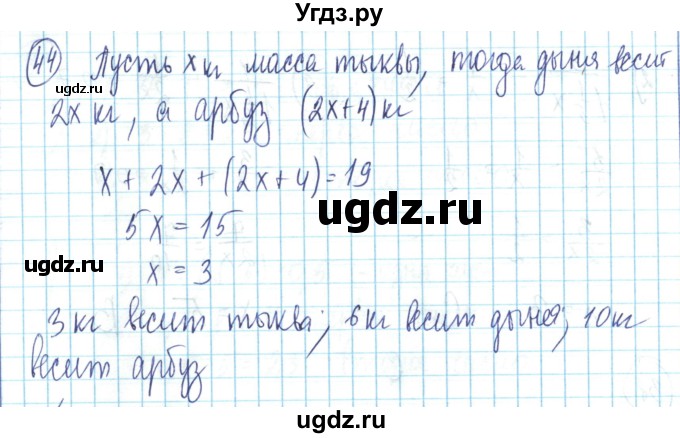 Угдз.ру
44 Пусть x кг масса тыквы, тогда дыня весит
2x кг, а арбуз (2x+4) кг
x + 2x + (2x+4) = 19
ugdz.ru
5x = 15
ugdz.ru
x = 3
3 кг весит тыква; 6 кг весит дыня; 10 кг
весит арбуз
ugdz.ru
ugdz.ru